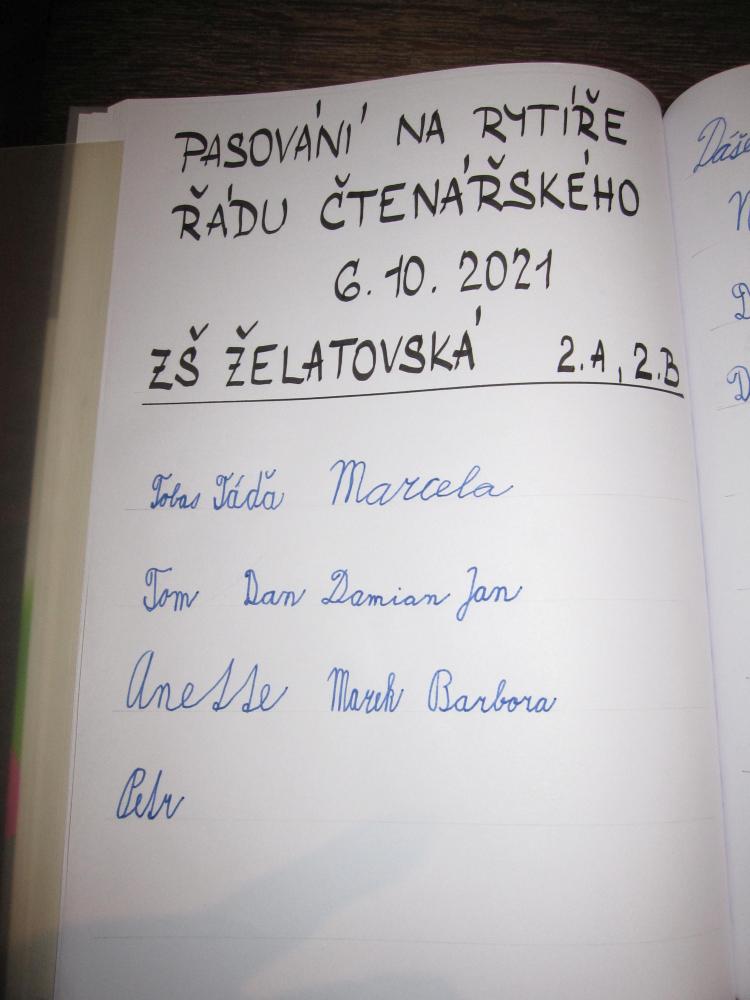 PASOVÁNÍ NA RYTÍŘE
ŘÁDU ČTENÁŘSKÉHO
6. 10. 2021
ZŠ ŽELATOVSKÁ 2.A, 2.B
Tobas Táďa Marcela
Tom Dan Damian Jan
Anette Marek Barbora
Petr